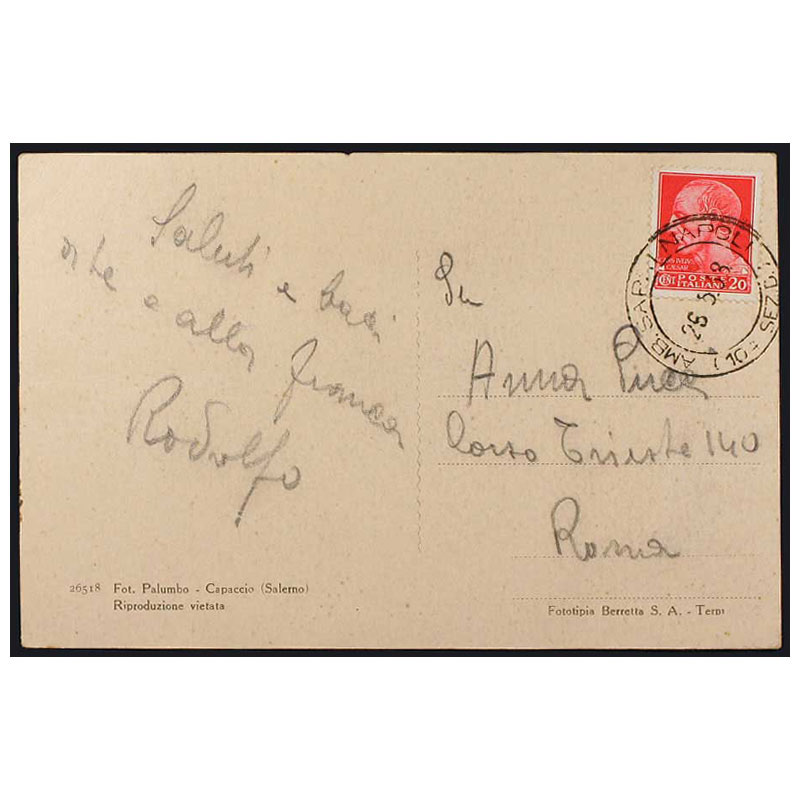 Saluti e baci
a te e alla Franca
Rodolfo
26518 Fot. Palumbo - Capaccio (Salerno)
Riproduzione vietata
CAIVS IVLIVS
CAESAR
POSTE
ITALIANE
20
AMB. NAPOLI
SEZ.
Anna
Corso Trieste 140
Roma
Fototipia Berretta S. A. - Terni